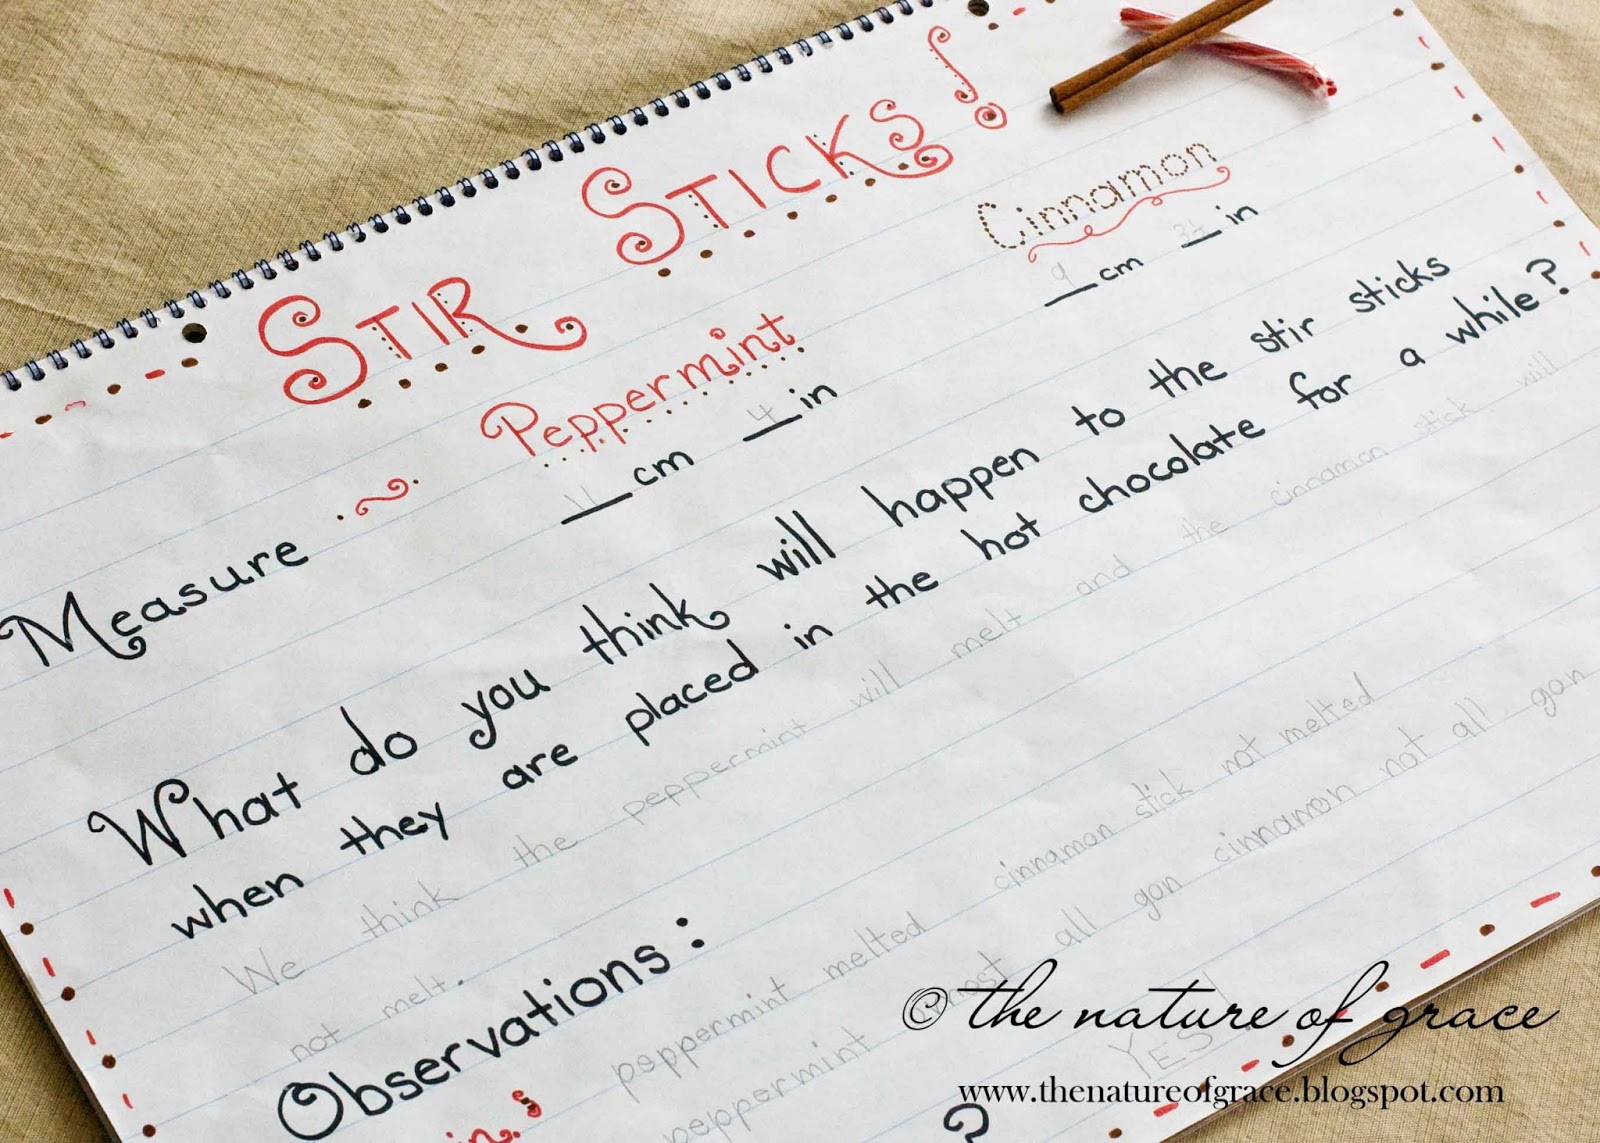 STIR STICKS!
Peppermint Cinnamon
Measure 11 cm 4 in 9 cm in
What do you think will happen to the stir sticks
when they are placed in the hot chocolate for a while?
We think the peppermint will melt and the cinnamon stick will
not melt.
Observations:
peppermint melted cinnamon stick not melted
peppermint most all gon cinnamon not all gon
YES!
?
© the nature of grace
www.thenatureofgrace.blogspot.com